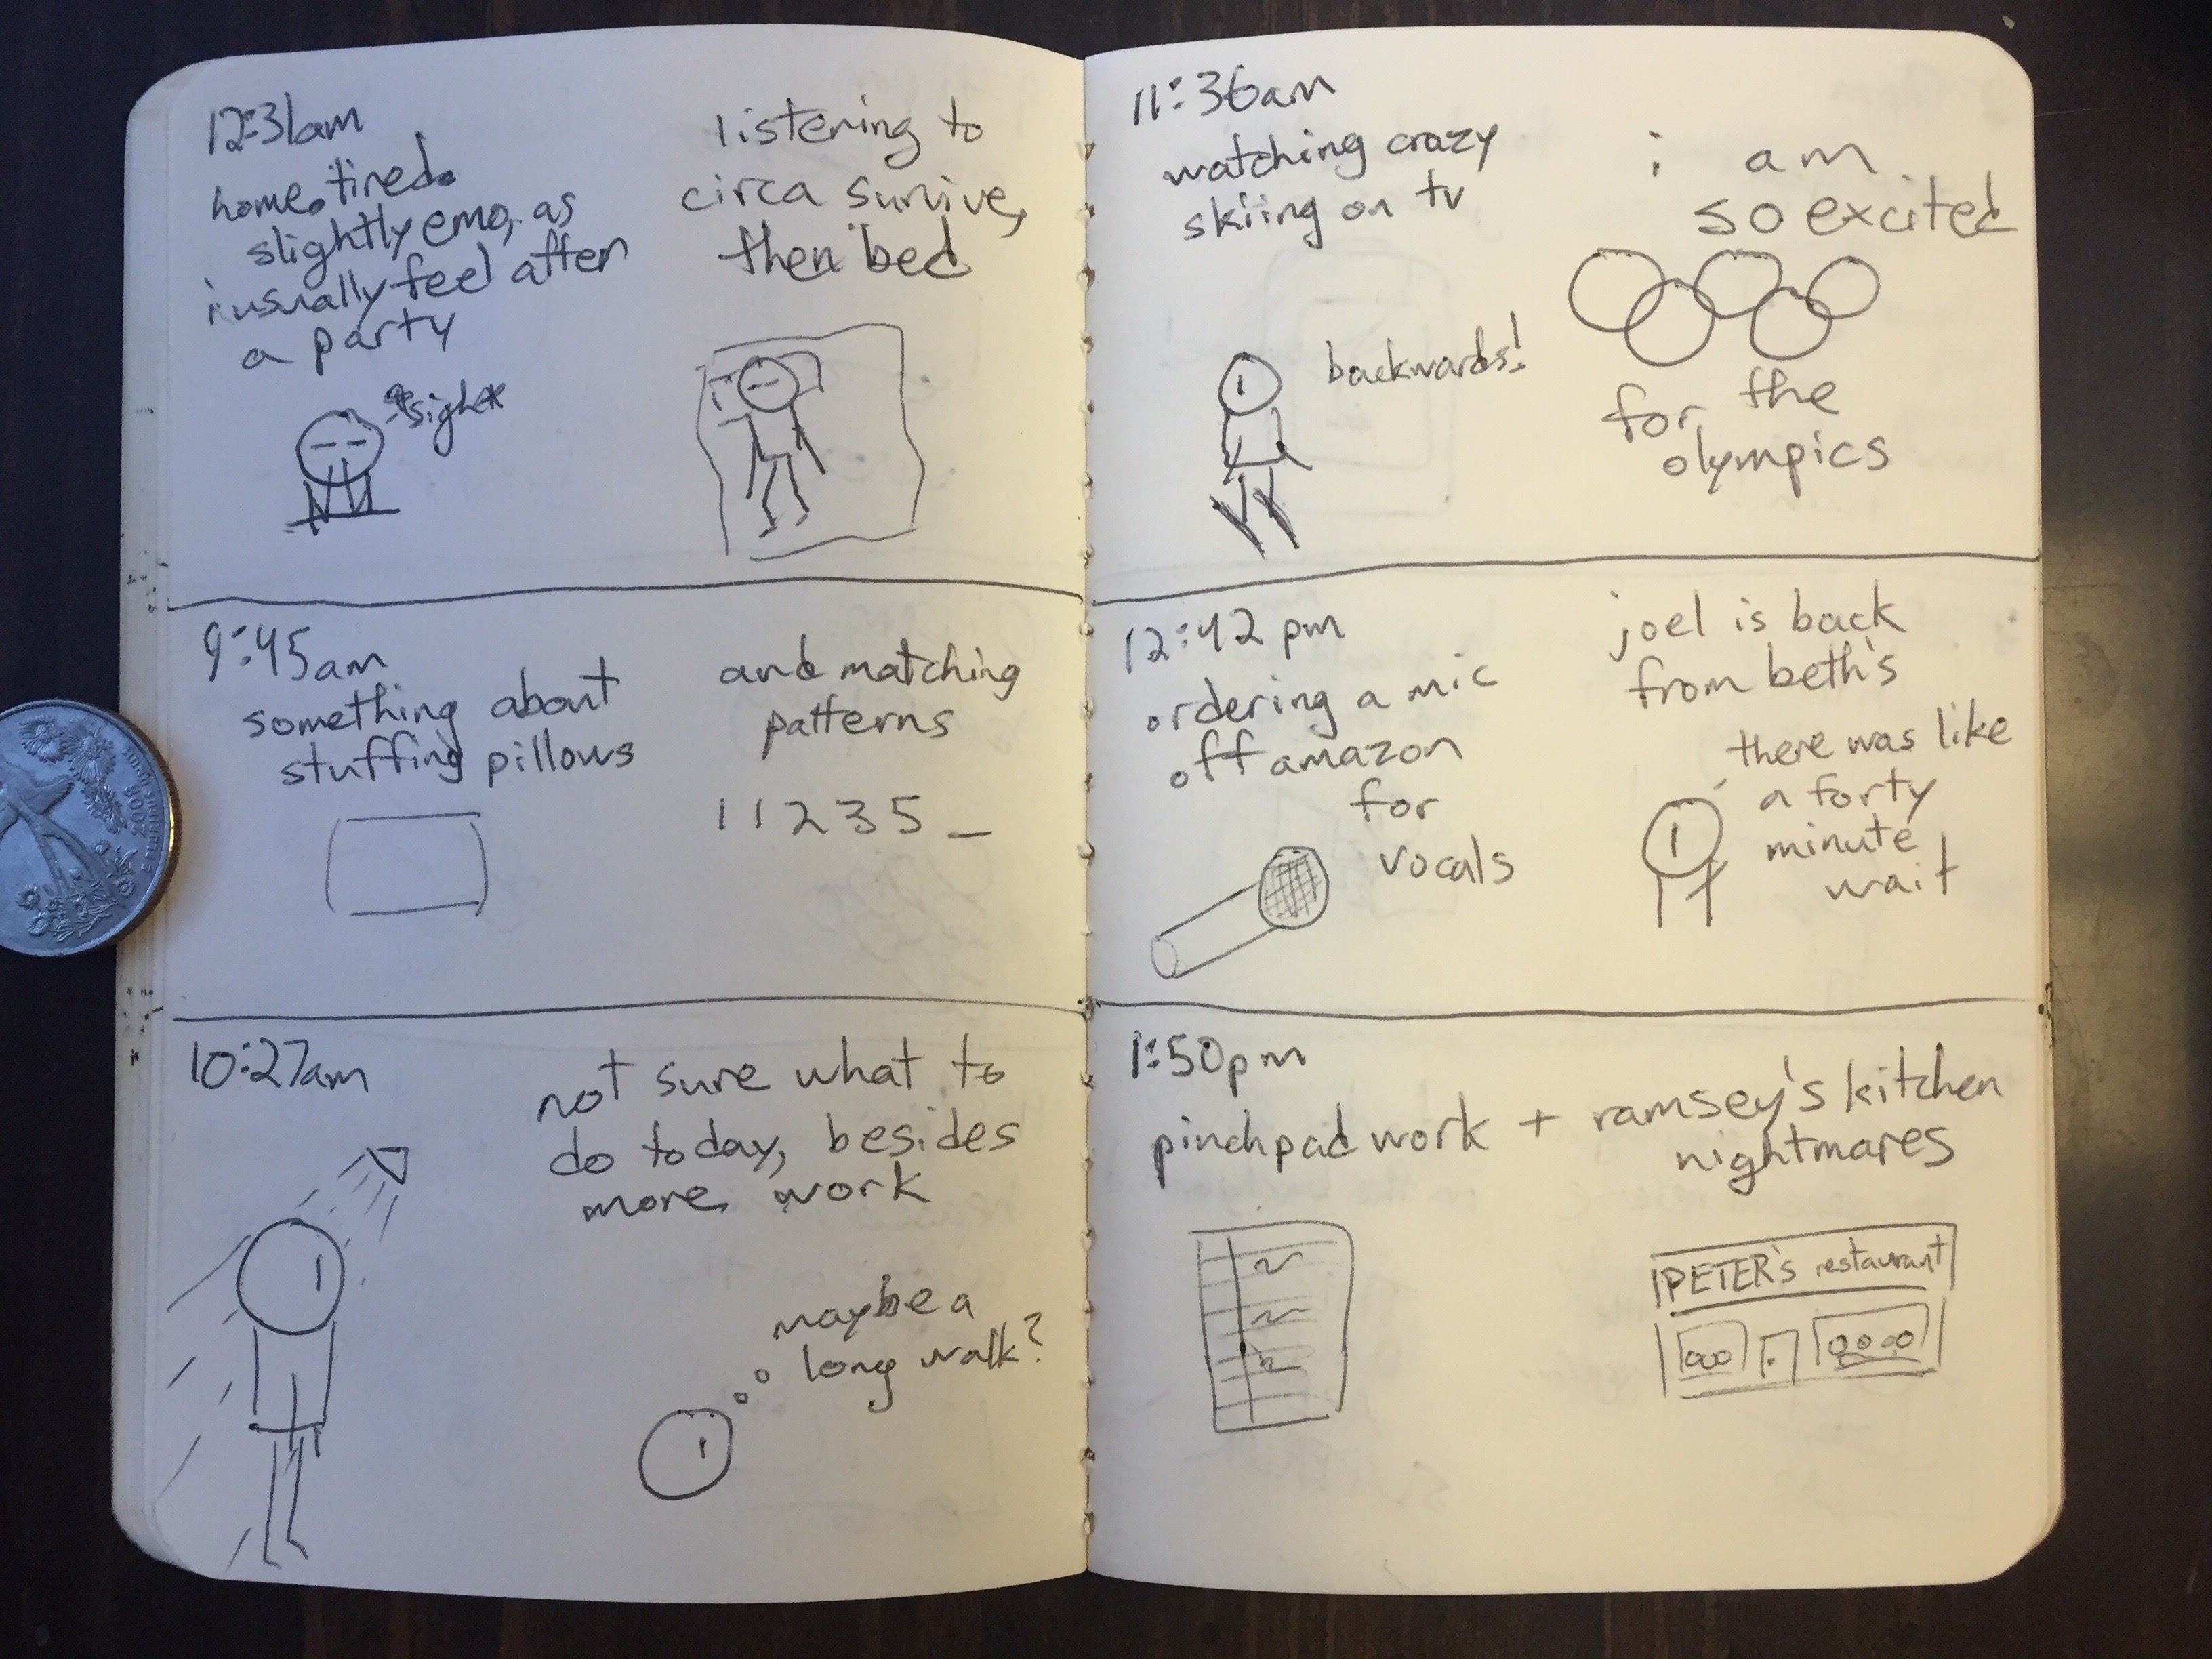 12:31am
home. tired.
slightly emo, as
i usually feel after
a party
*sigh*
listening to
circa survive,
then bed
9:45am
something about
stuffing pillows
and matching
patterns
1 1 2 3 5 _
10:27am
not sure what to
do today, besides
more work
maybe a
long walk?
11:36am
watching crazy
skiing on tv
backwards!
i am
so excited
for the
olympics
12:42 pm
ordering a mic
off amazon
for
vocals
joel is back
from beth's
there was like
a forty
minute
wait
1:50pm
pinchpad work + ramsey's kitchen
nightmares
PETER's restaurant